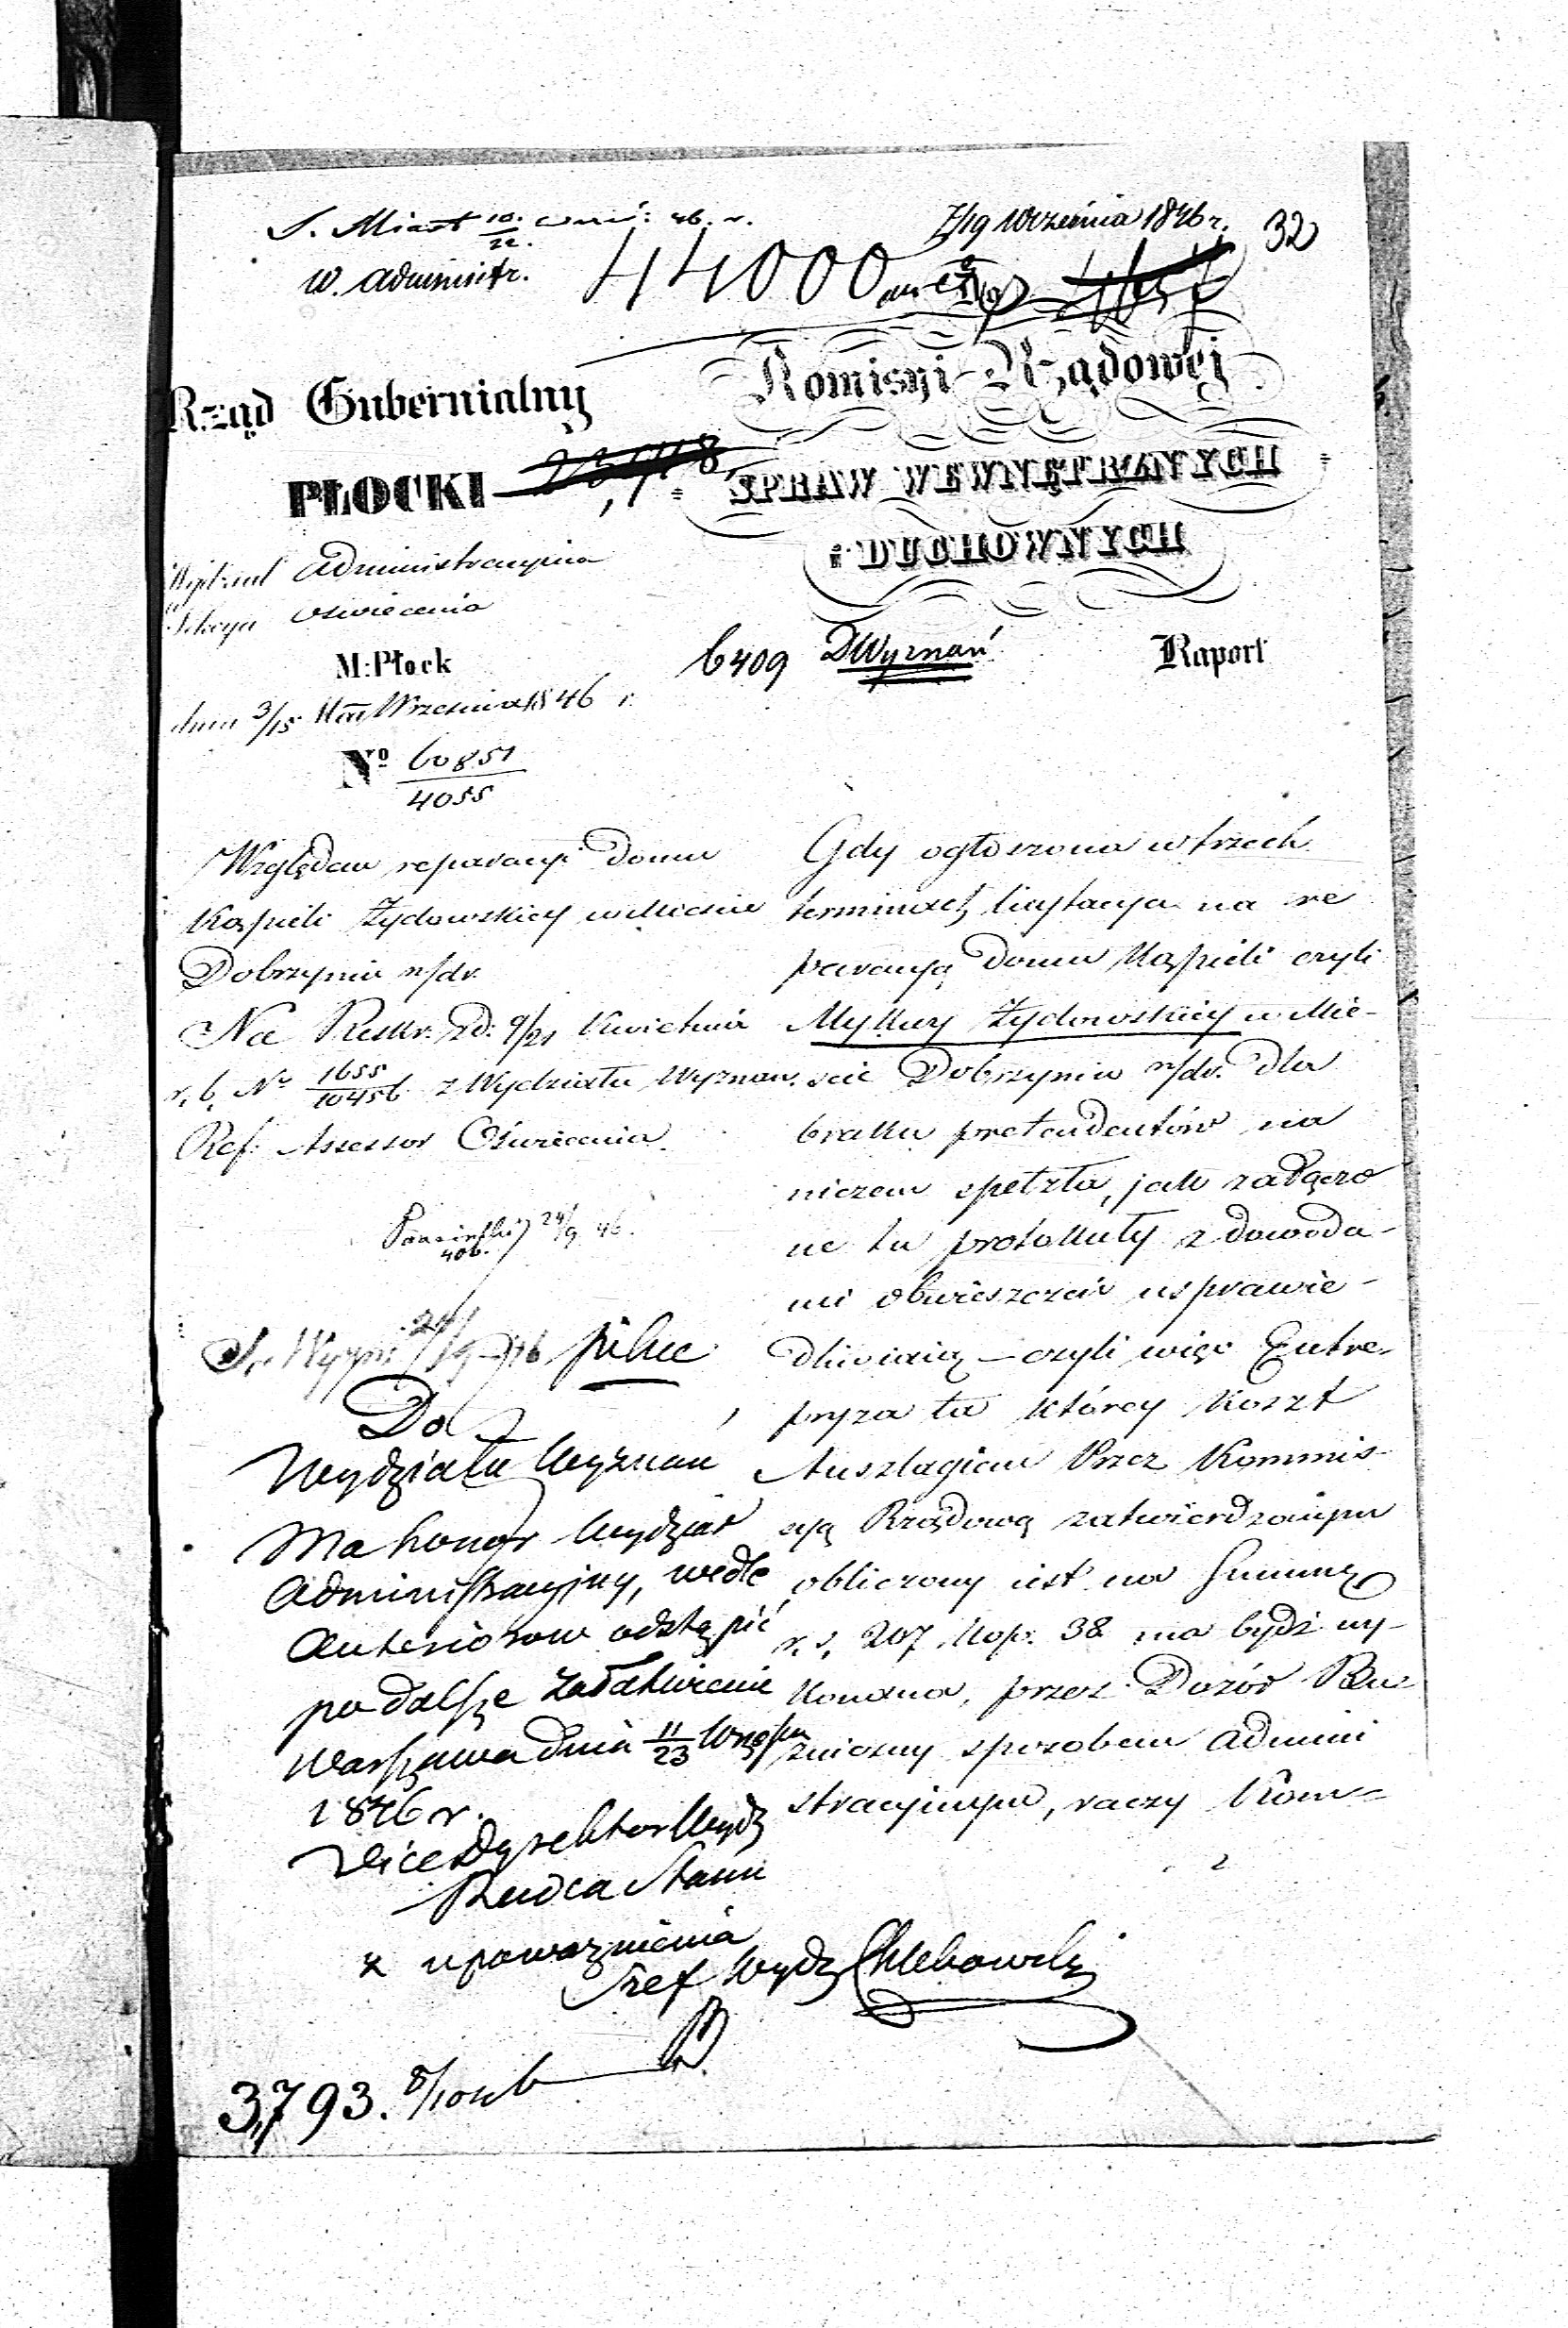 S. Miast 10/22 wrześ: 46. r.
7/19 Września 1846 r.
32
W. Administr.
44000
Rząd Gubernialny
PŁOCKI
Komisyi Rządowej
SPRAW WEWNĘTRZNYCH
i DUCHOWNYCH
Wydział Administracyjny
Sekcya Oswiecenia
M: Płock
6409 DWyznań
Raport
dnia 3/15 Września 1846 r.
No 60851/4055
Względem reparacyi Domu
Kąpieli Żydowskiey w Mieście
Dobrzyniu n/dr.
Na Reskr: zd: 9/21 Kwietnia
r. b. No 1655/10456 z Wydziału Wyznań.
Ref: Assessor Oświecenia
24/9 46.
Gdy ogłoszona w trzech
terminach licytacya na re
paracyą Domu Kąpieli czyli
Mykwy Żydowskiey w Mie-
scie Dobrzyniu n/dr. dla
braku pretendentów na
niczem spełzła, jak załączo
ne tu protokuły z dowoda-
mi obwieszczeń usprawie-
dliwiaią – czyli więc Entre-
pryza ta którey koszt
Anszlagiem Przez Kommis-
syą Rządową zatwierdzonym
obliczony iest na Summę
r. s. 207 kop: 38 ma bydź wy-
konana, przez Dozór Bu-
zniczny sposobem Admini
stracyinym, raczy Kom=
pilne
Do
Wydziału Wyznań
Ma honor Wydział
Administracyjny, wedle
Anteriorow odstąpić
po dalsze załatwienie
Warszawa dnia 11/23 Wrześn
1846 r.
Vice Dyrektor Wydz
Radca Stanu
z upoważnienia
Szef Wydz Chlebowski
3,793. 8/10